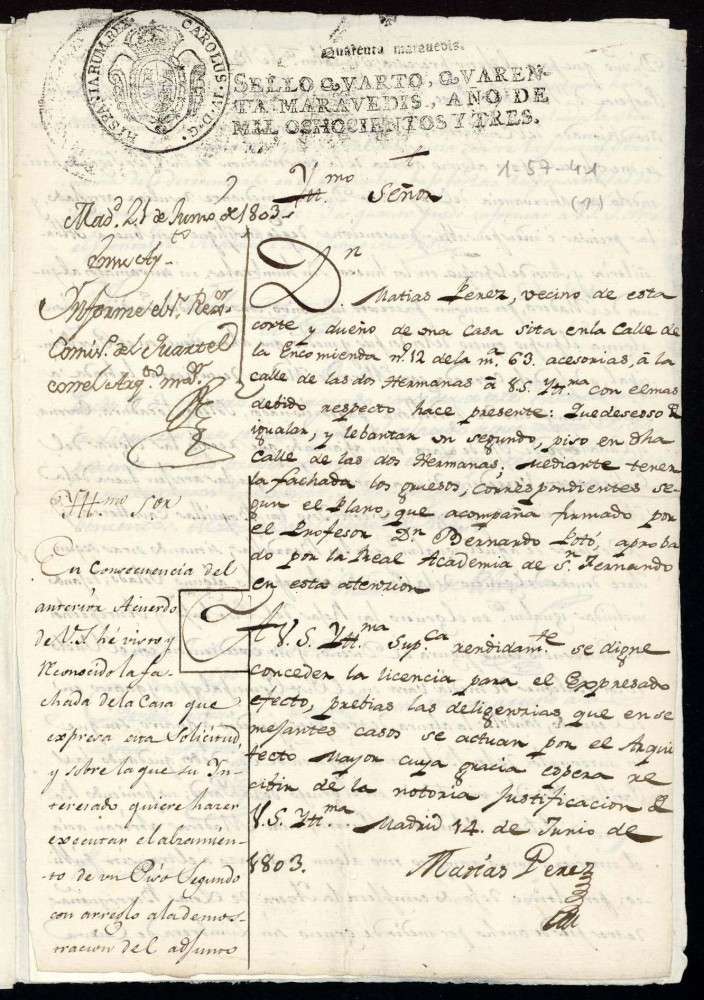 HISPANIARUM REX. CAROLUS IV D. G.
Quarenta maravedis.
SELLO QVARTO, QVAREN-
TA MARAVEDIS, AÑO DE
MIL OCHOCIENTOS Y TRES.
1-57-41
(1)
Mad.d 21 de Junio de 1803
Informe el S.r Rex.or
Comis.o del Quartel
con el Arq.to m.or
Ytt.mo Sor
En consecuencia del
anterior Acuerdo
de V.I. hé visto y
reconocido la fa-
chada de la Casa que
expresa esta Solicitud,
y sobre la que su In-
teresado quiere hacer
executar el alzamien-
to de un Piso Segundo
con arreglo a la demos-
tracion del adjunto
Ytt.mo Señor
D.n Matias Perez, vecino de esta
corte y dueño de una casa sita en la Calle de
la Encomienda n.o 12 de la m.a 63. acesorias, â la
calle de las dos Hermanas â V.S. Ytt.ma con el mas
debido respecto hace presente: Que desseoso de
igualar, y lebantar un segundo, piso en dha
calle de las dos Hermanas, mediante tener
la fachada los gruesos, correspondientes se-
gun el Plano, que acompaña firmado por
el Profesor D.n Bernardo aproba
do por la Real Academia de S.n Fernando
en esta atenzion
A V.S. Ytt.ma Sup.ca rendidam.te se digne
conceder la licencia para el Expresado
efecto, prebias las diligenzias que en se
mejantes casos se actuan por el Arqui
tecto Mayor cuya gracia espera re
cibir de la notoria Justificacion de
V.S. Ytt.ma Madrid 14. de Junio de
1803.
Matias Perez